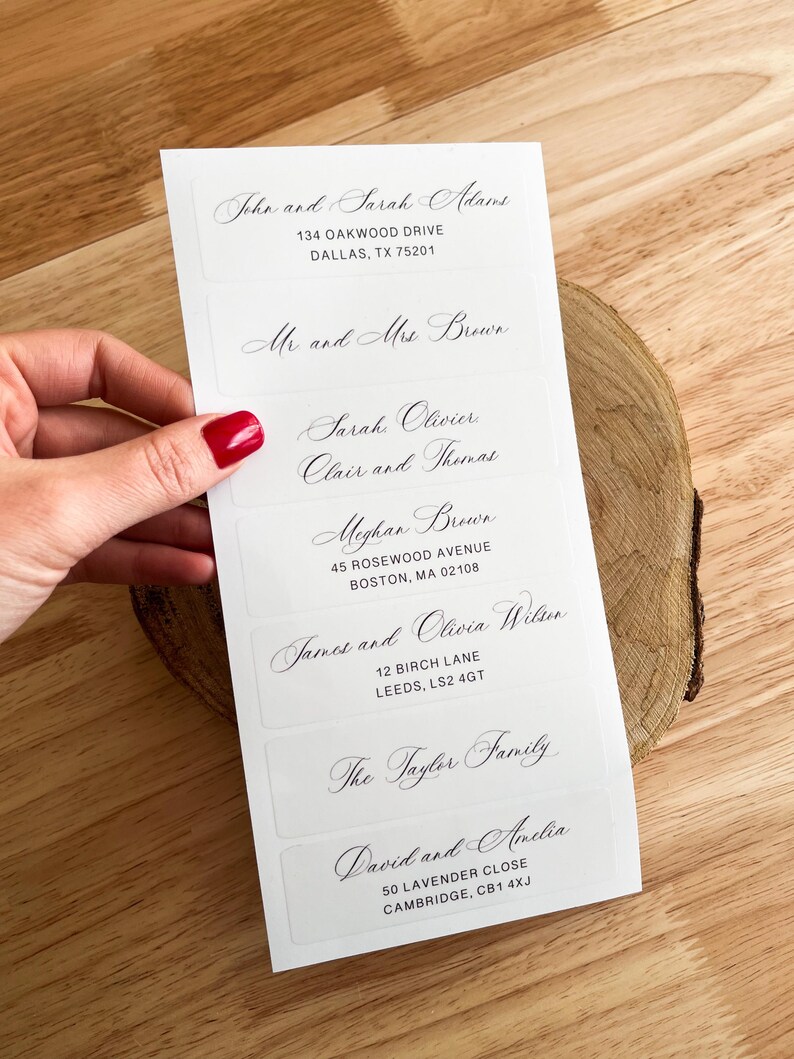 John and Sarah Adams
134 OAKWOOD DRIVE
DALLAS, TX 75201
Mr and Mrs Brown
Sarah, Olivier,
Clair and Thomas
Meghan Brown
45 ROSEWOOD AVENUE
BOSTON, MA 02108
James and Olivia Wilson
12 BIRCH LANE
LEEDS, LS2 4GT
The Taylor Family
David and Amelia
50 LAVENDER CLOSE
CAMBRIDGE, CB1 4XJ